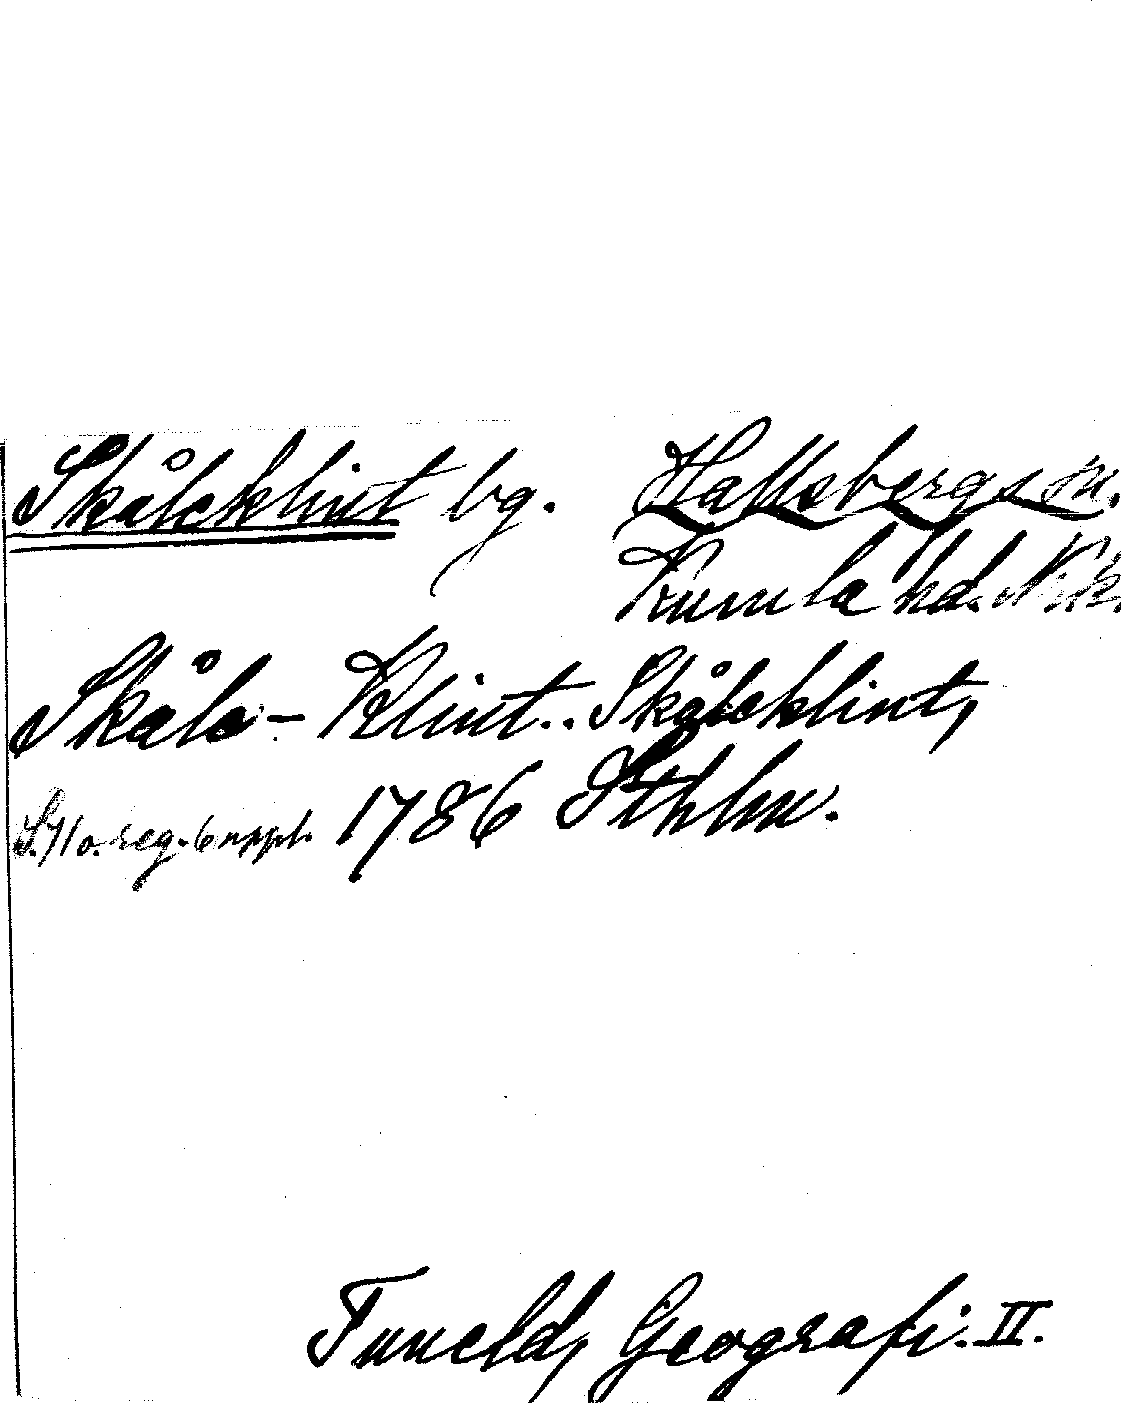 Skåleklint bg. Hallsbergs sn.
Kumla hd. Nrk.
Skåle-Klint.. Skåleklint,
S. 71 o. reg. 6 uppl. 1786 Sthlm.
Tuneld, Geografi. II.